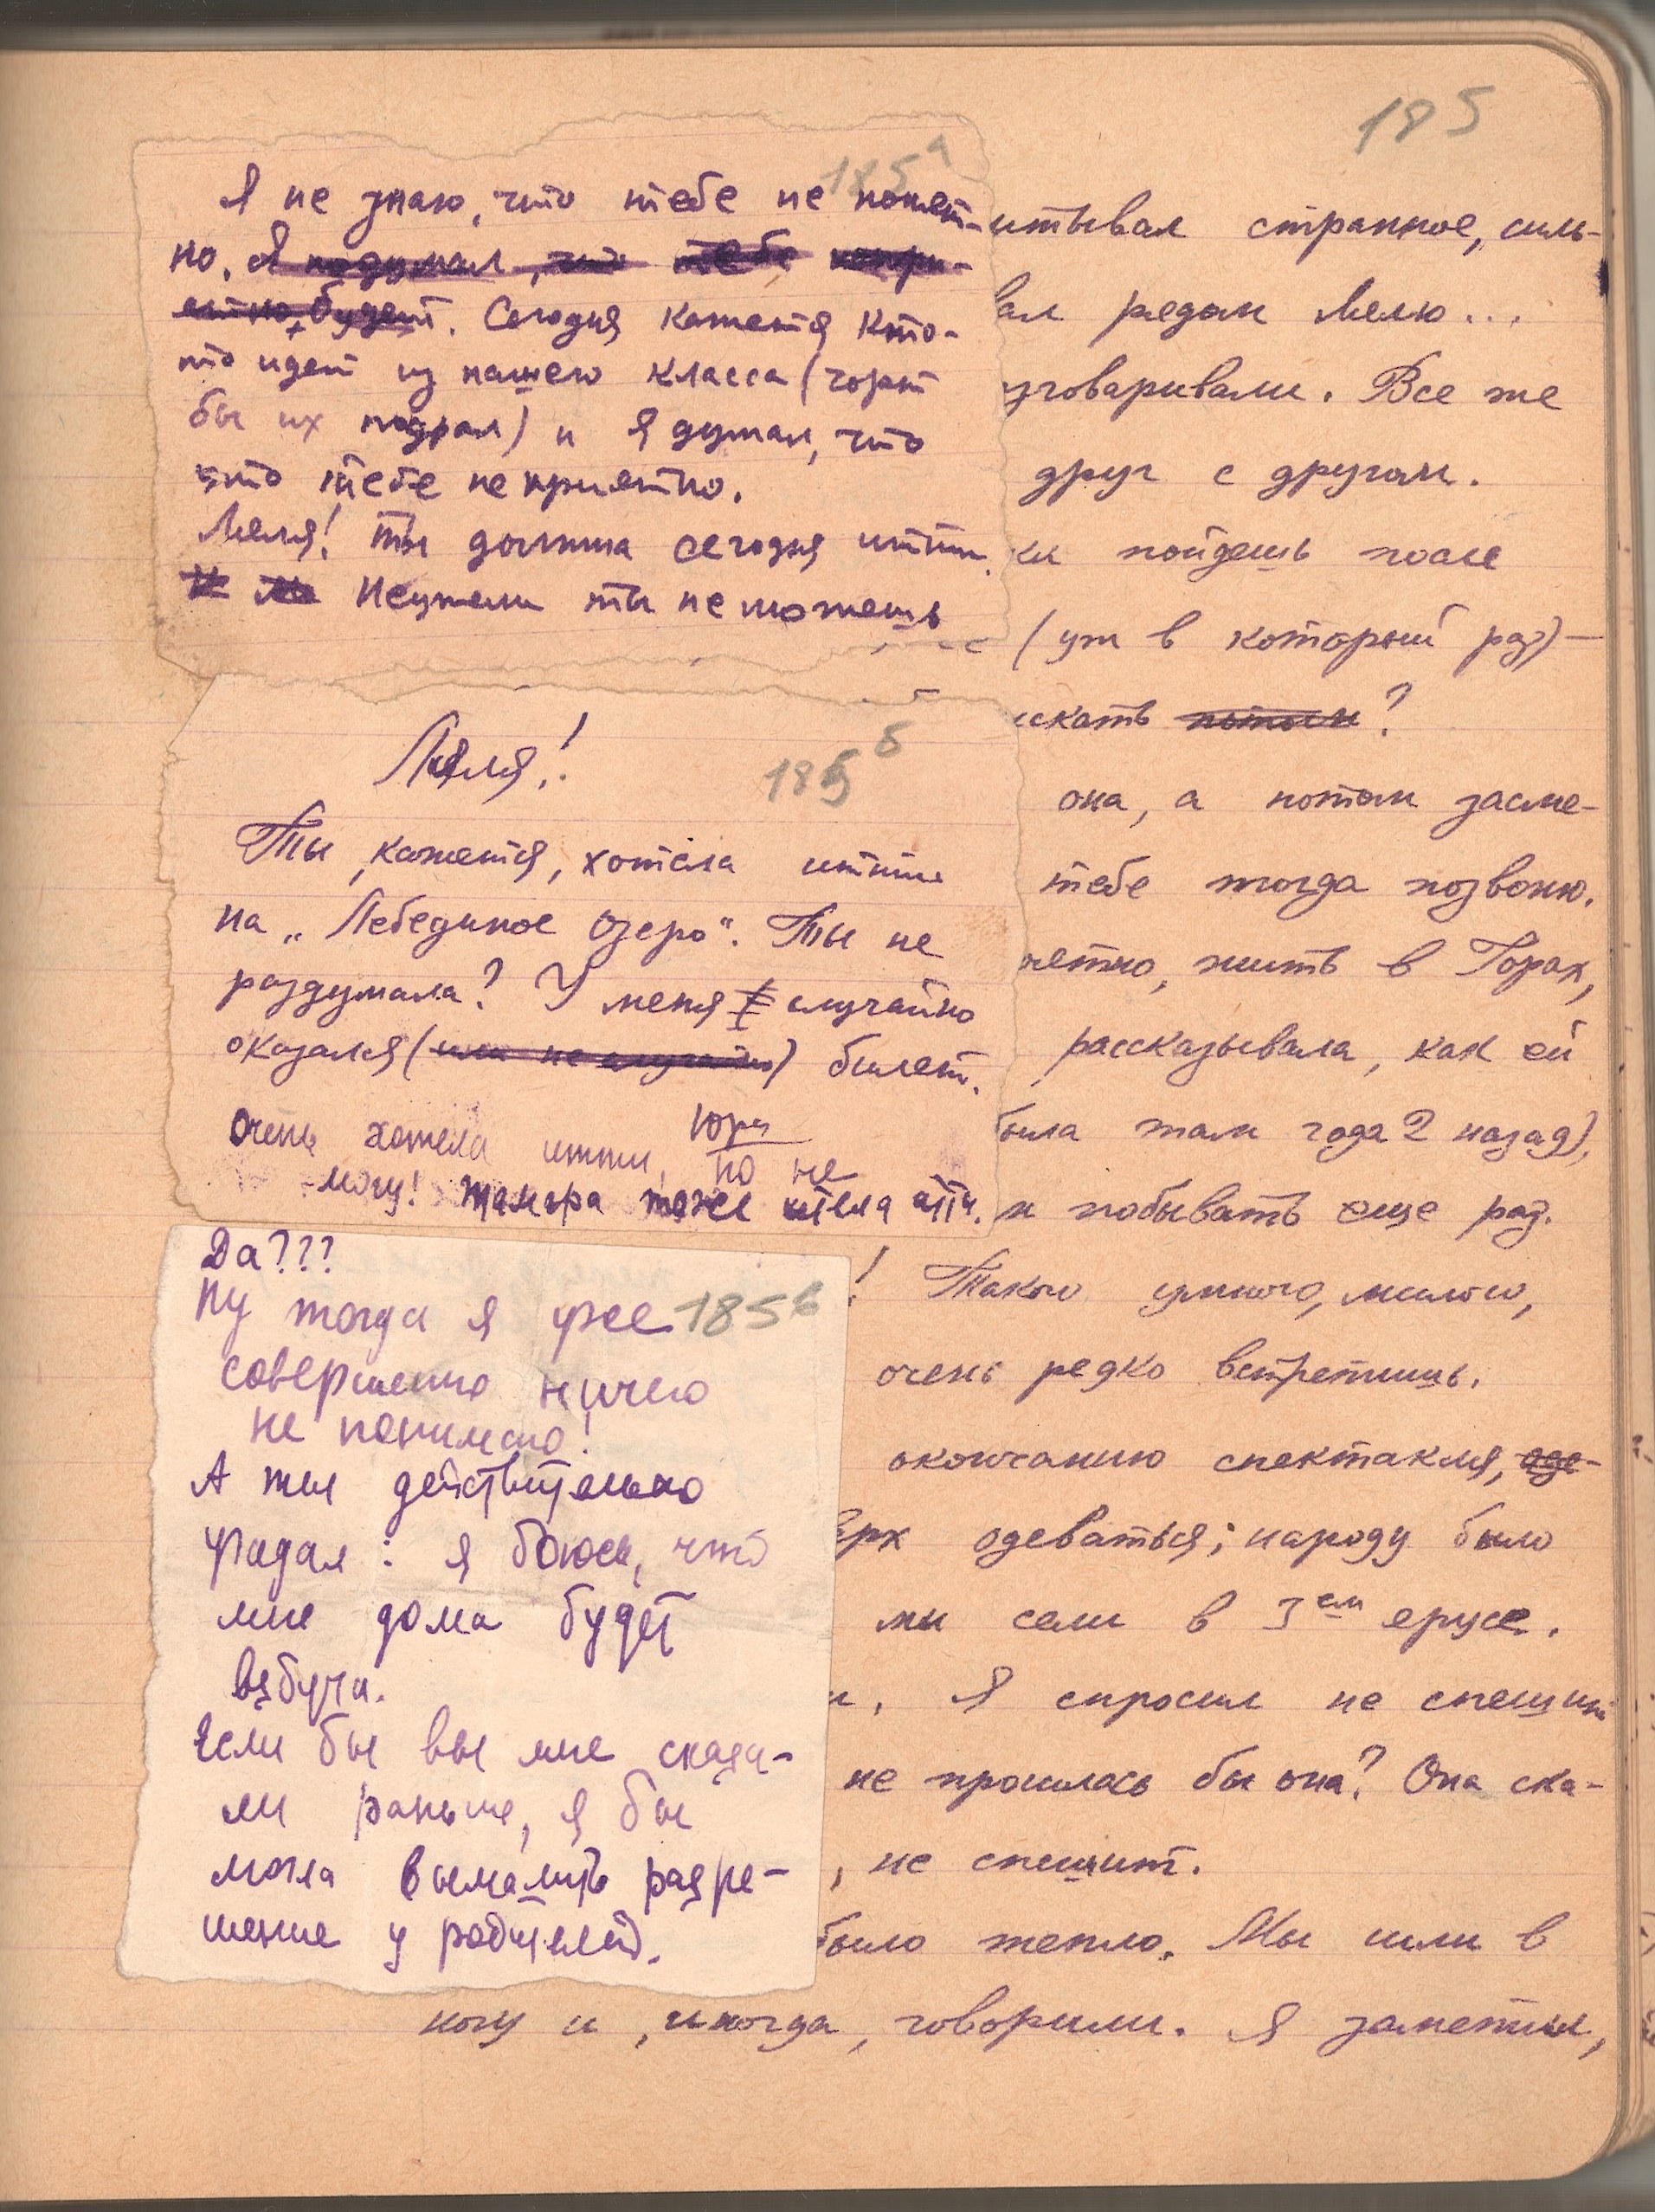 185
185а
Я не знаю, что тебе не понят-
но. Я подумал, что тебе непри-
ятно будет. Сегодня кажется кто-
то идет из нашего класса (чорт
бы их подрал) и я думал, что
что тебе неприятно.
Ляля! ты должна сегодня итти.
Неужели ты не можешь
185б
Ляля!
Ты, кажется, хотела итти
на „Лебединое озеро“. Ты не
раздумала? У меня случайно
оказался (или не случайно) билет.
Юра
Очень хотела итти, но не
могу! Тамара тоже хтела итти.
185в
Да???
Ну тогда я уже
совершенно ничего
не понимаю!
А ты действительно
угадал: я боюсь, что
мне дома будет
взбучи.
Если бы вы мне сказа-
ли раньше, я бы
могла вымолить разре-
шение у родителей.
итывал странное, силь-
вал рядом Лялю...
зговаривали. Все же
друг с другом.
ки пойдешь после
(уж в который раз) —
скать потом?
она, а потом засме-
тебе тогда позвоню.
иятно, жить в Горах,
рассказывала, как ей
была там года 2 назад),
и побывать еще раз.
! Такого умного, милого,
очень редко встретишь.
окончанию спектакля, оде-
ерх одеваться; народу было
мы сели в 3ем ярусе.
и. Я спросил не спешит
не прошлась бы она? Она ска-
, не спешит.
было тепло. Мы шли в
ногу и, иногда, говорили. Я заметил,